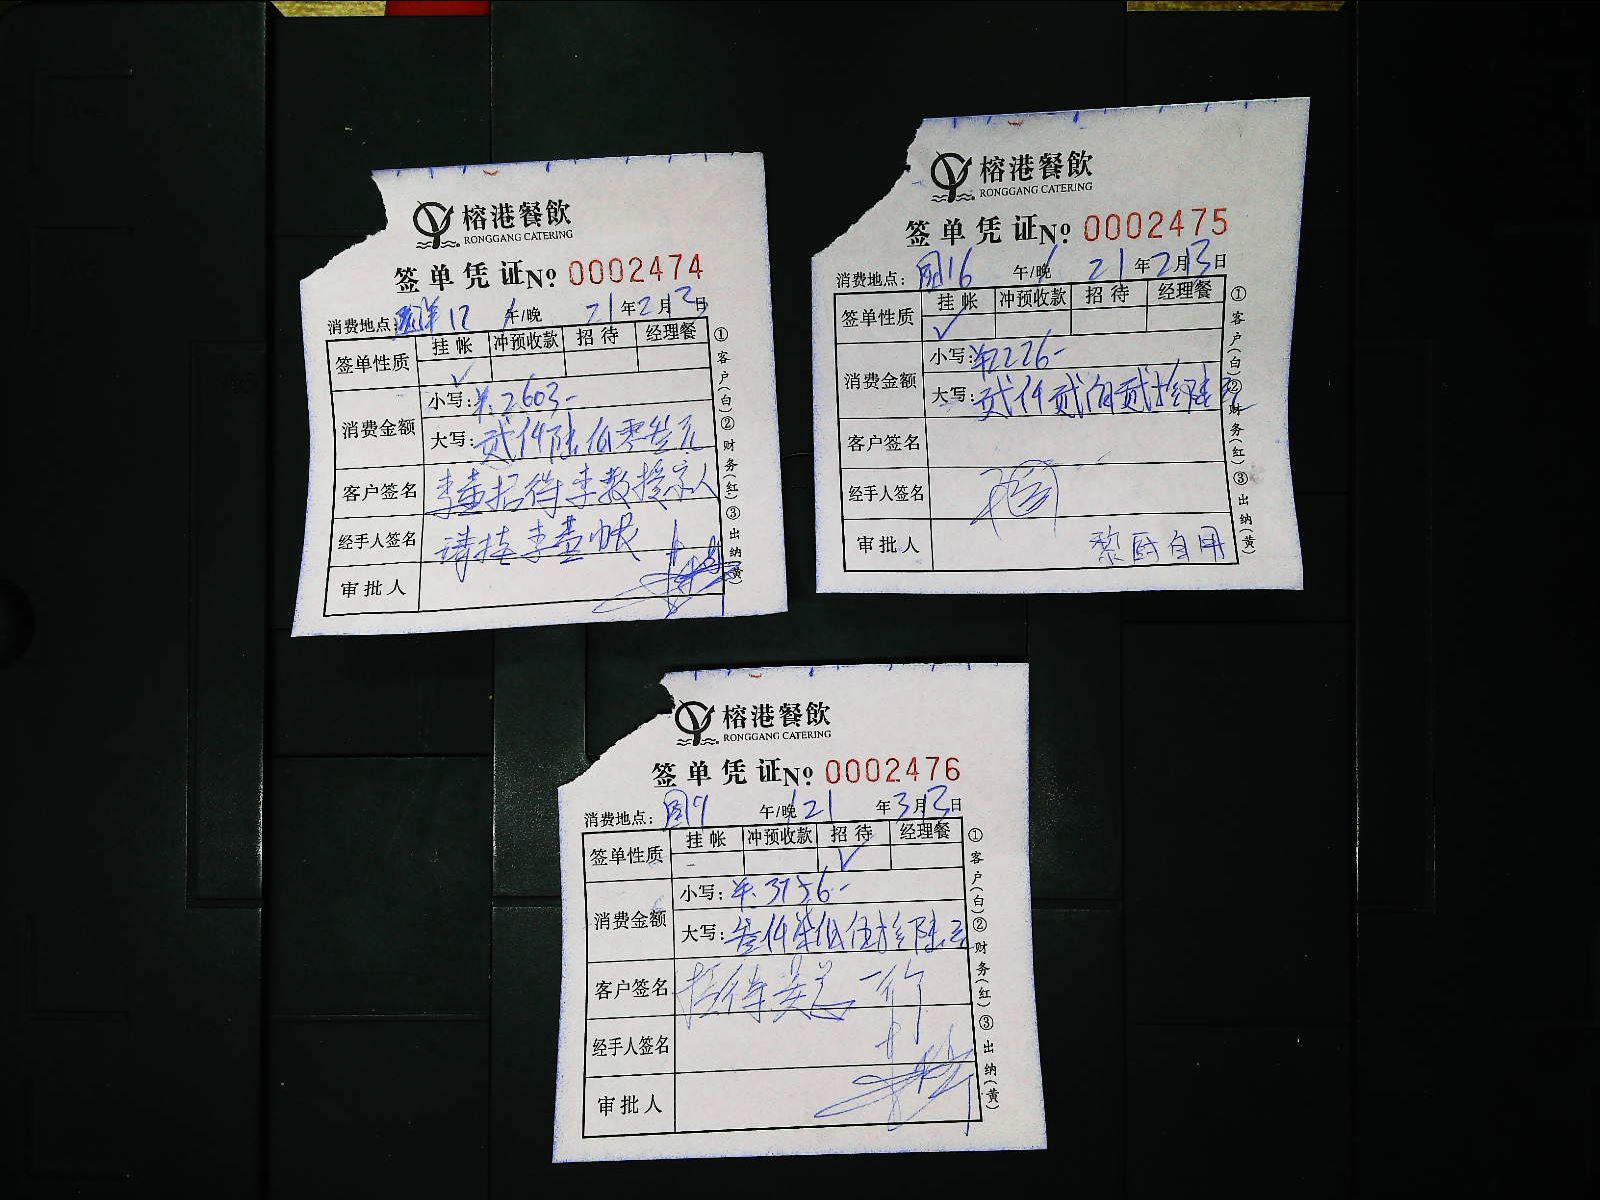 榕港餐飲
RONGGANG CATERING
签单凭证№ 0002474
消费地点: 12 午/晚 21年2月13日
签单性质 挂帐 冲预收款 招待 经理餐
✓
消费金额 小写: ¥:2603-
大写: 贰仟陆佰零叁元
客户签名 李董招待李教授京人
经手人签名 请挂李董帐
审批人
①客户(白)②财务(红)③出纳(黄)
榕港餐飲
RONGGANG CATERING
签单凭证№ 0002475
消费地点: 16 午/晚 21年2月13日
签单性质 挂帐 冲预收款 招待 经理餐
✓
消费金额 小写: ¥2226-
大写: 贰仟贰佰贰拾陆元
客户签名
经手人签名
审批人 自用
①客户(白)②财务(红)③出纳(黄)
榕港餐飲
RONGGANG CATERING
签单凭证№ 0002476
消费地点: 午/晚 21年3月13日
签单性质 挂帐 冲预收款 招待 经理餐
✓
消费金额 小写: ¥:3756-
大写: 叁仟柒佰伍拾陆元
客户签名 招待吴总一行
经手人签名
审批人
①客户(白)②财务(红)③出纳(黄)